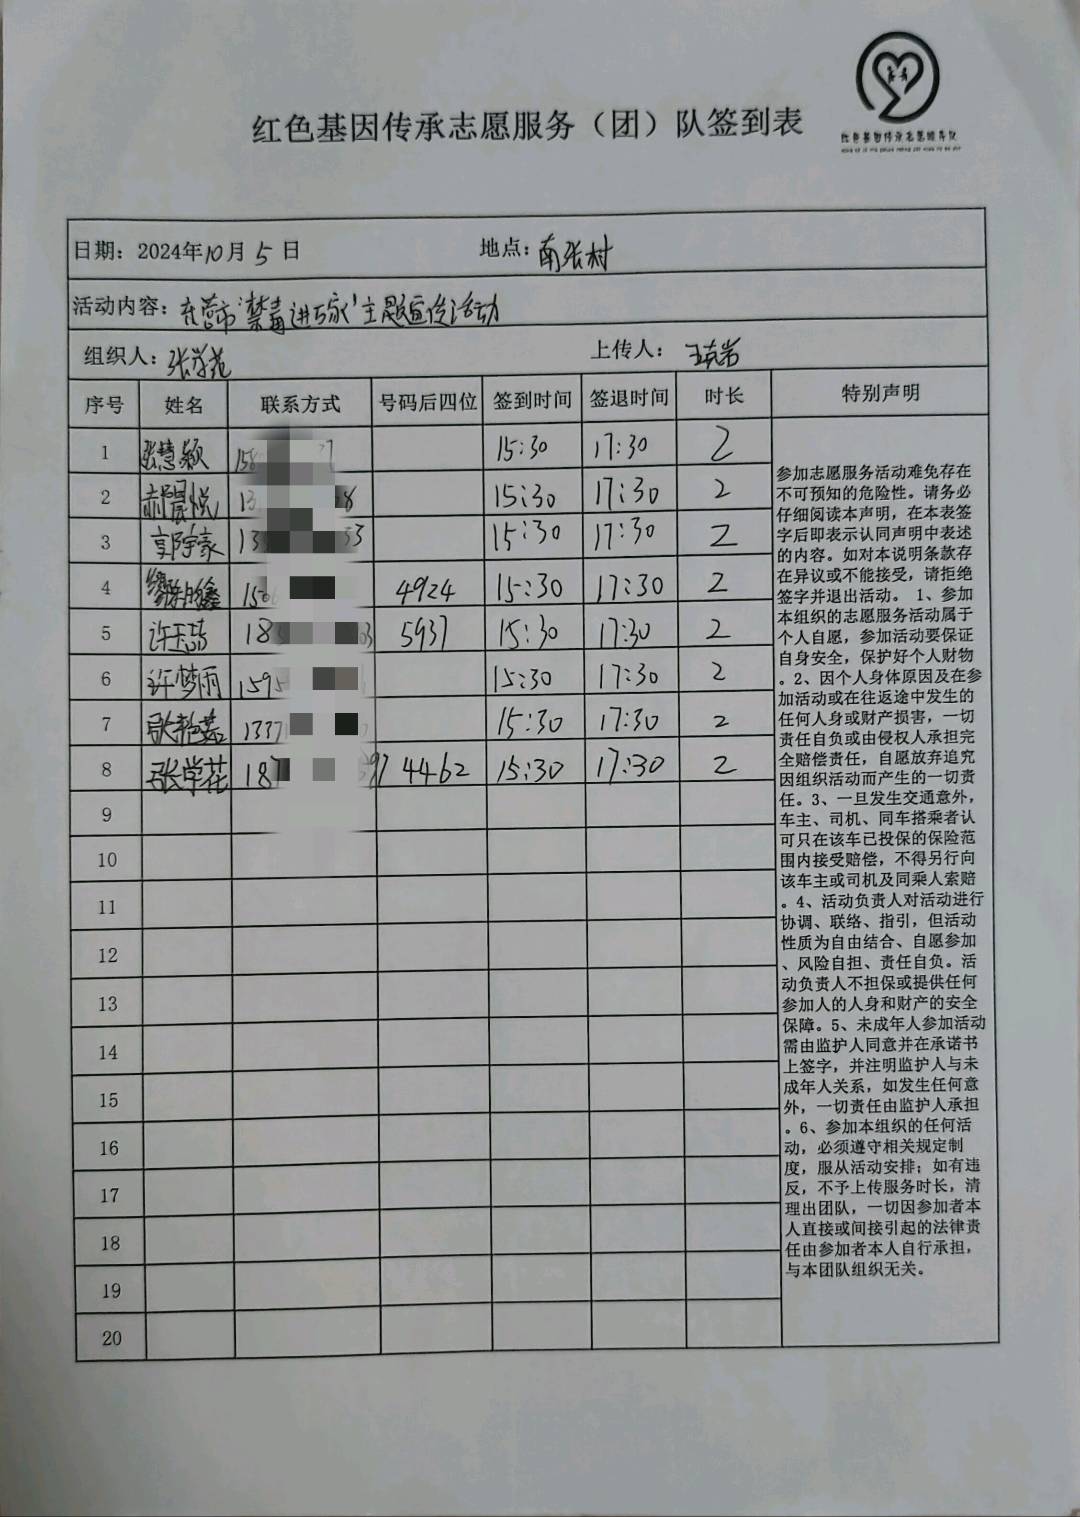 红色基因传承志愿服务(团)队签到表
红色基因传承志愿服务队
日期：2024年10月5日 地点：南张村
活动内容：东营市“禁毒进万家”主题宣传活动
组织人：张学花 上传人：
序号 姓名 联系方式 号码后四位 签到时间 签退时间 时长 特别声明
1 张慧颖 15:30 17:30 2
2 郝晨悦 15:30 17:30 2
3 15:30 17:30 2
4 4924 15:30 17:30 2
5 许 5937 15:30 17:30 2
6 许梦雨 15:30 17:30 2
7 张 1337 15:30 17:30 2
8 张学花 4462 15:30 17:30 2
9
10
11
12
13
14
15
16
17
18
19
20
参加志愿服务活动难免存在
不可预知的危险性。请务必
仔细阅读本声明，在本表签
字后即表示认同声明中表述
的内容。如对本说明条款存
在异议或不能接受，请拒绝
签字并退出活动。 1、参加
本组织的志愿服务活动属于
个人自愿，参加活动要保证
自身安全，保护好个人财物
。2、因个人身体原因及在参
加活动或在往返途中发生的
任何人身或财产损害，一切
责任自负或由侵权人承担完
全赔偿责任，自愿放弃追究
因组织活动而产生的一切责
任。3、一旦发生交通意外，
车主、司机、同车搭乘者认
可只在该车已投保的保险范
围内接受赔偿，不得另行向
该车主或司机及同乘人索赔
。4、活动负责人对活动进行
协调、联络、指引，但活动
性质为自由结合、自愿参加
、风险自担、责任自负。活
动负责人不担保或提供任何
参加人的人身和财产的安全
保障。5、未成年人参加活动
需由监护人同意并在承诺书
上签字，并注明监护人与未
成年人关系，如发生任何意
外，一切责任由监护人承担
。6、参加本组织的任何活
动，必须遵守相关规定制
度，服从活动安排；如有违
反，不予上传服务时长，清
理出团队，一切因参加者本
人直接或间接引起的法律责
任由参加者本人自行承担，
与本团队组织无关。